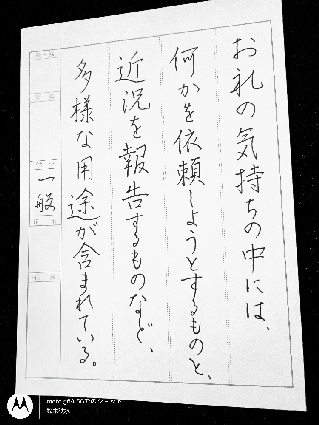 お礼の気持ちの中には、
何かを依頼しようとするものと、
近況を報告するものなど、
多様な用途が含まれている。
一般